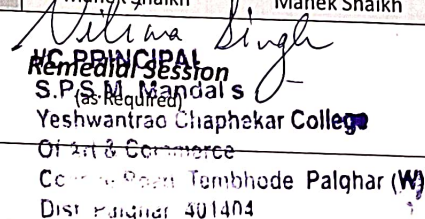 Manek Shaikh Manek Shaikh
Nilima Singh
I/C PRINCIPAL
Remedial Session
S.P.S.M. Mandal s
(as Required)
Yeshwantrao Chaphekar College
Of Art & Commerce
Road Tembhode Palghar (W)
Dist Palghar 401404